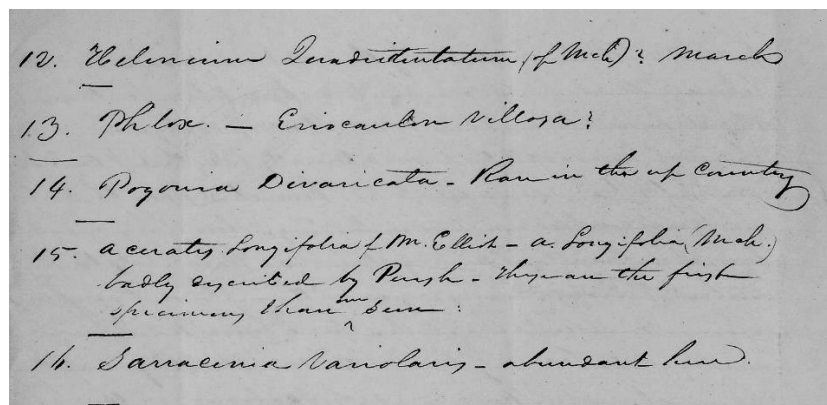 12. Helenium Quadridentatum (of Mch)? March
13. Phlox. — Eriocaulon Villosa?
14. Pogonia Divaricata - Rare in the up Country
15. Acerates Longifolia of M. Elliot - A. Longifolia (Mch.)
badly described by Pursh - These are the first
specimens I have ever seen:
16. Sarracenia Variolaris - abundant here.